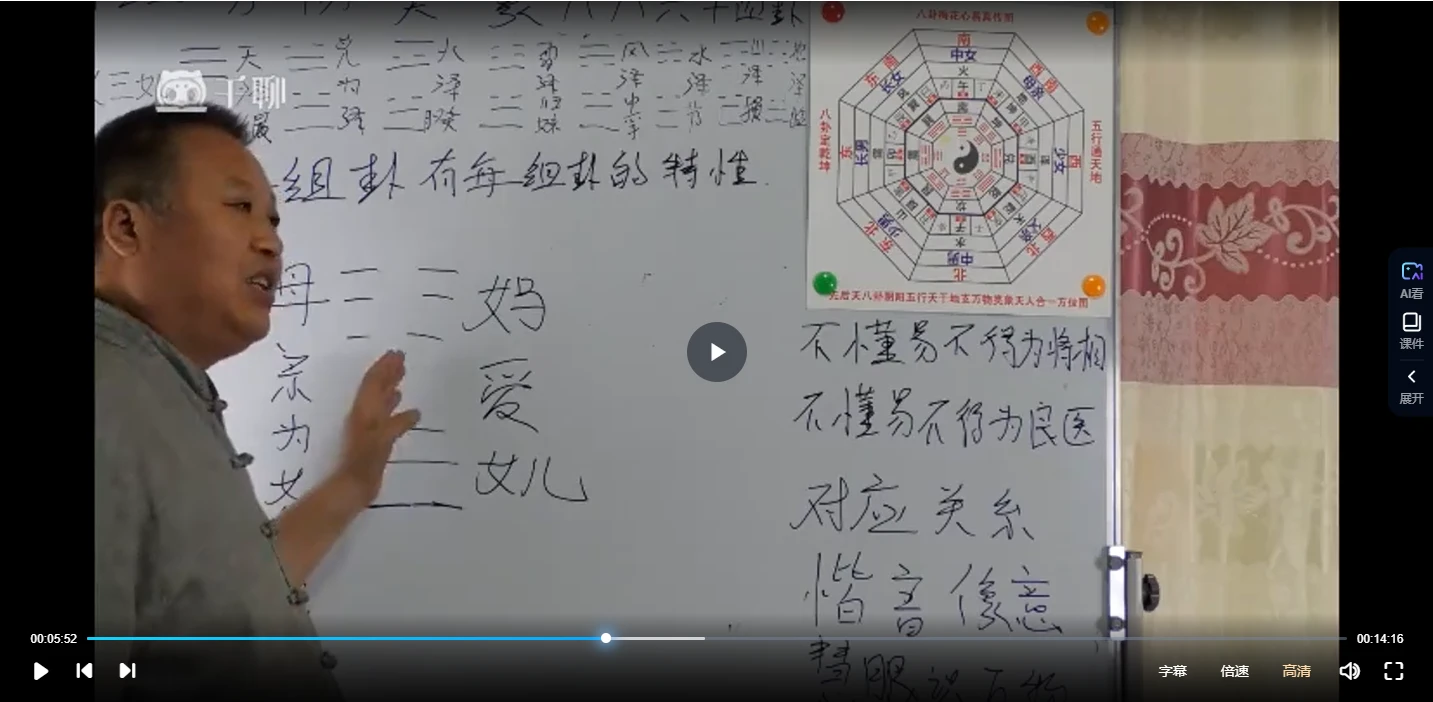 三女
天 兑 火 雷 风 水 山 地
为 泽 泽 泽 泽 泽 泽
泽 睽 归妹 中孚 节 损 临
千聊
组卦有每组卦的特性
母
亲
为
女
妈
爱
女儿
八卦梅花心易真传图
八卦定乾坤
五行通天地
南
中女
火
午
离
东南
长女
西南
母亲
东
长男
西
少女
东北
少男
西北
父亲
坎
子
水
中男
北
先后天八卦阴阳五行天干地支万物类象天人合一方位图
不懂易不得为将相
不懂易不得为良医
对应关系
偕音像意
慧眼识万物
AI看
课件
展开
00:05:52
00:14:16
字幕
倍速
高清